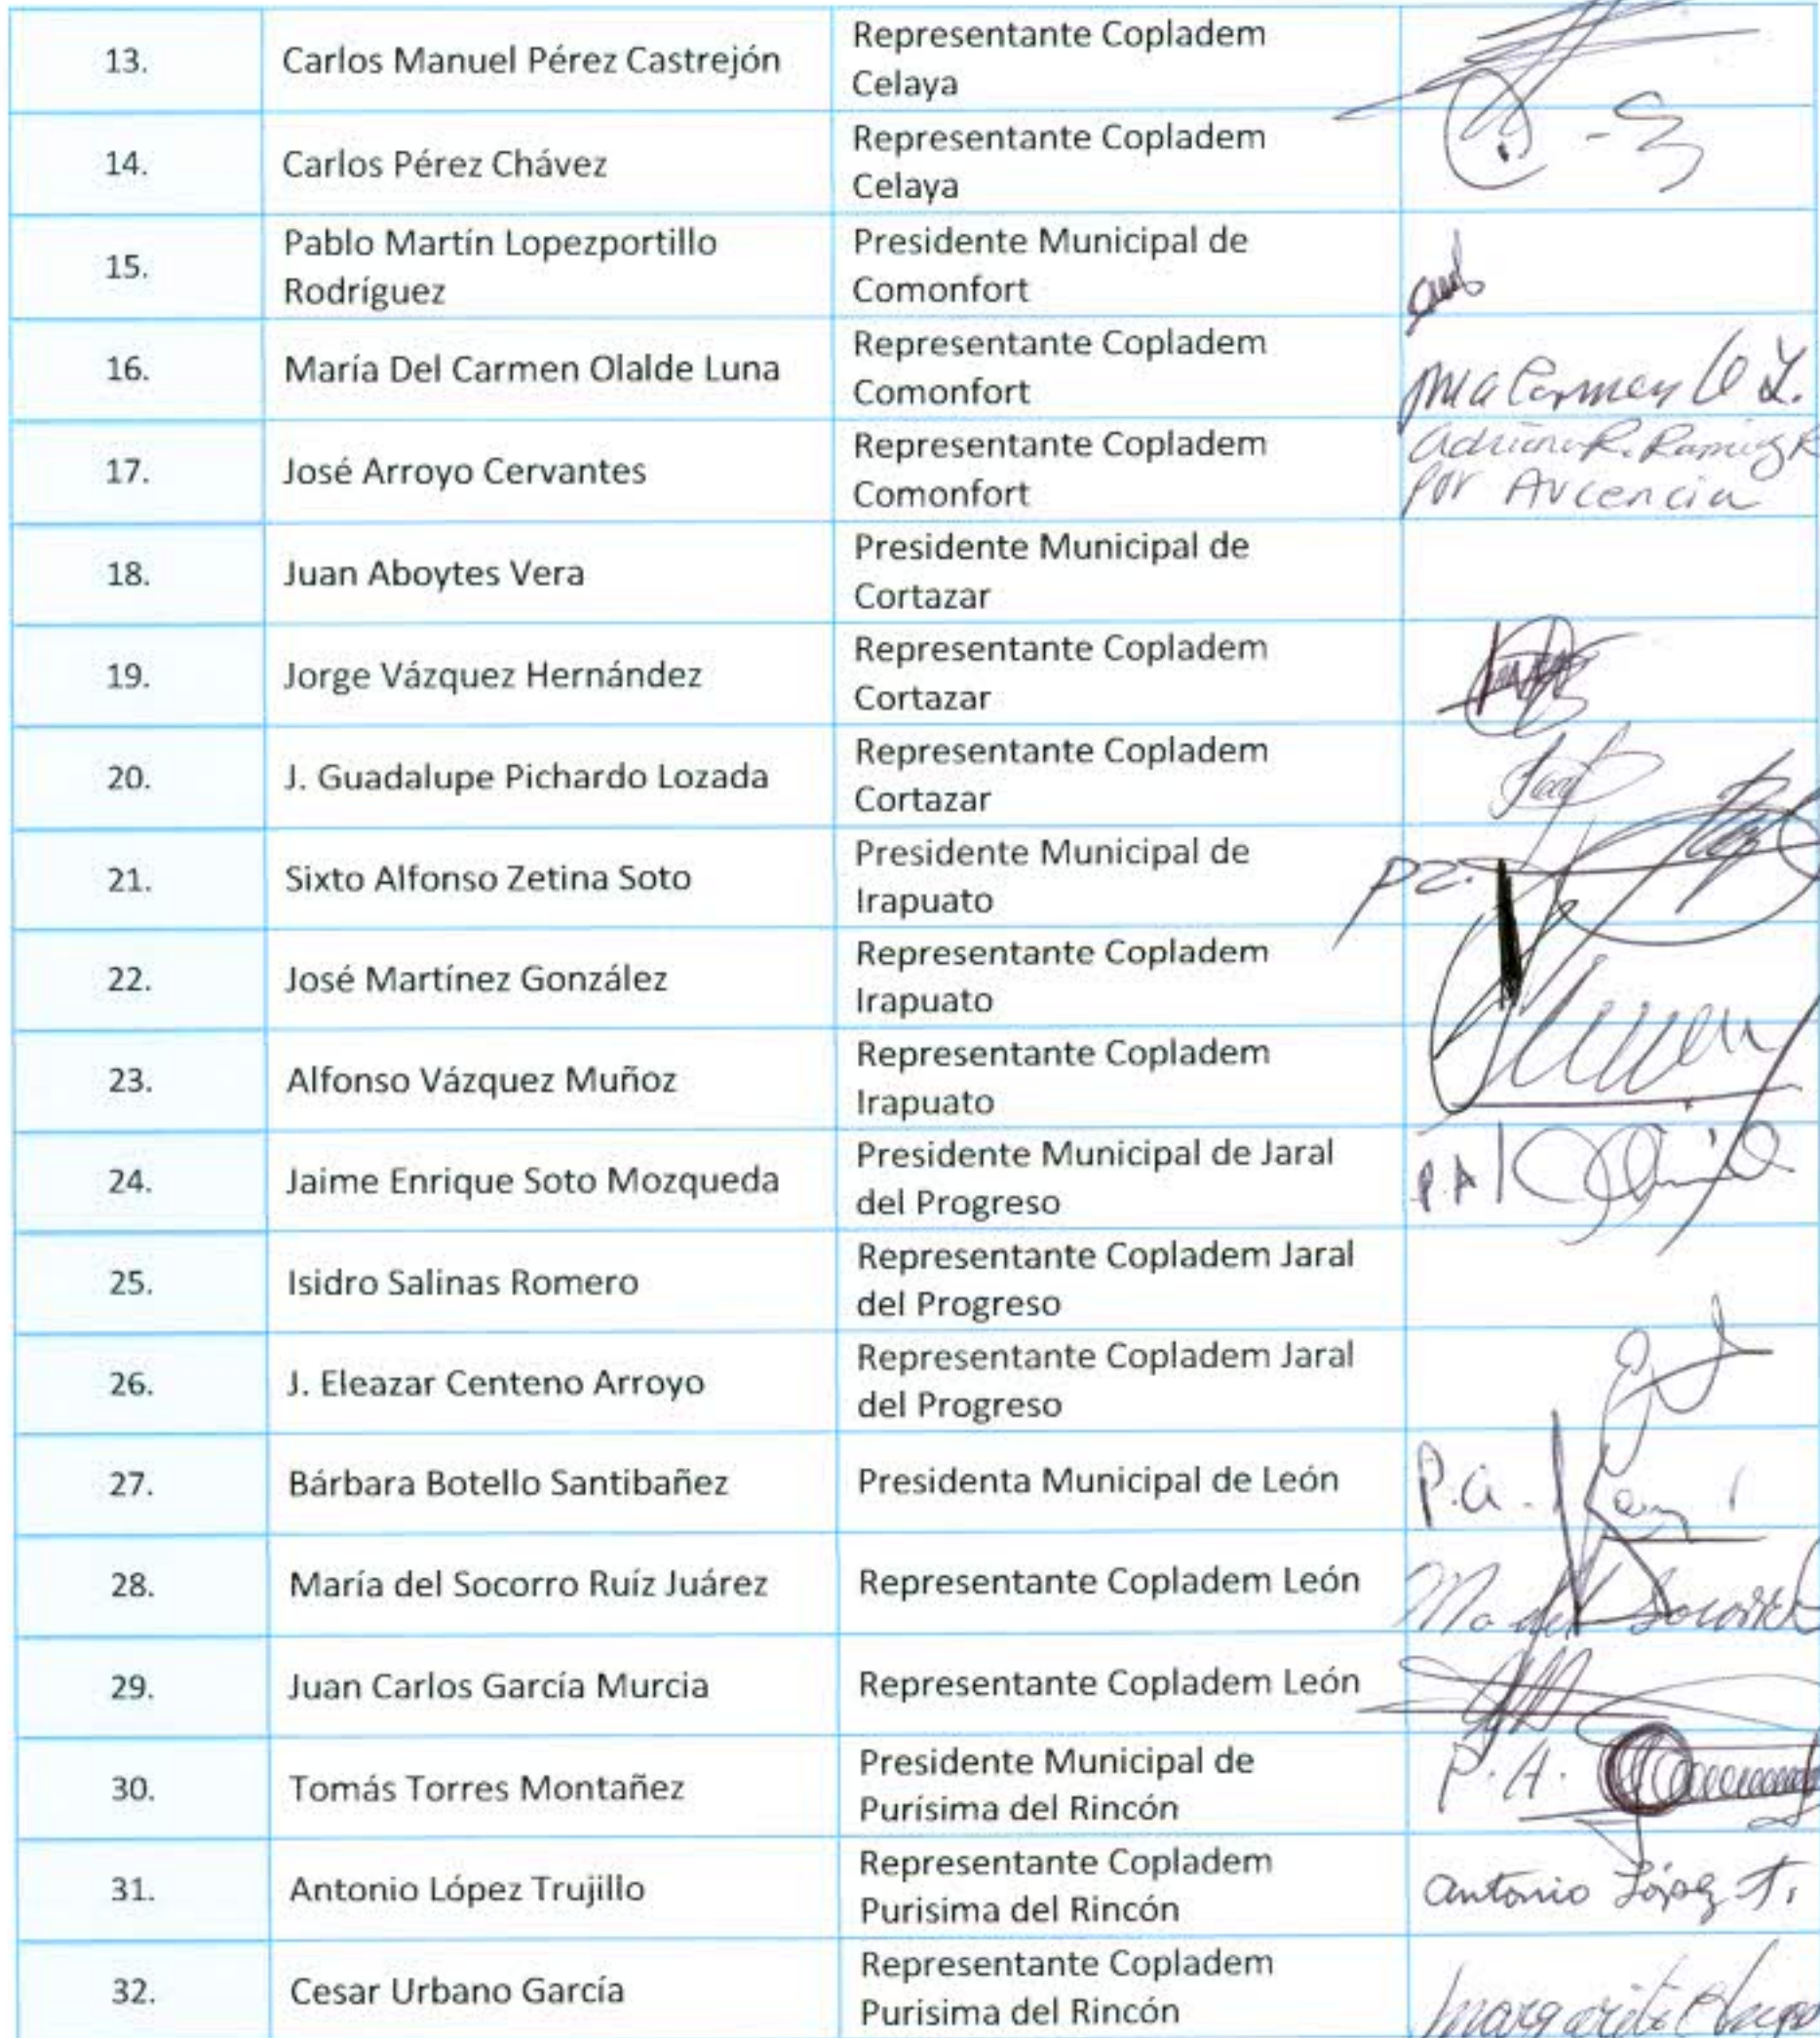 13.
Carlos Manuel Pérez Castrejón
Representante Copladem
Celaya
14.
Carlos Pérez Chávez
Representante Copladem
Celaya
15.
Pablo Martín Lopezportillo
Rodríguez
Presidente Municipal de
Comonfort
16.
María Del Carmen Olalde Luna
Representante Copladem
Comonfort
Ma Carmen O L.
17.
José Arroyo Cervantes
Representante Copladem
Comonfort
R. Ramirez R
por Avcencia
18.
Juan Aboytes Vera
Presidente Municipal de
Cortazar
19.
Jorge Vázquez Hernández
Representante Copladem
Cortazar
20.
J. Guadalupe Pichardo Lozada
Representante Copladem
Cortazar
21.
Sixto Alfonso Zetina Soto
Presidente Municipal de
Irapuato
22.
José Martínez González
Representante Copladem
Irapuato
23.
Alfonso Vázquez Muñoz
Representante Copladem
Irapuato
24.
Jaime Enrique Soto Mozqueda
Presidente Municipal de Jaral
del Progreso
P.A
25.
Isidro Salinas Romero
Representante Copladem Jaral
del Progreso
26.
J. Eleazar Centeno Arroyo
Representante Copladem Jaral
del Progreso
27.
Bárbara Botello Santibañez
Presidenta Municipal de León
P.a.
28.
María del Socorro Ruíz Juárez
Representante Copladem León
Ma del Socorro
29.
Juan Carlos García Murcia
Representante Copladem León
30.
Tomás Torres Montañez
Presidente Municipal de
Purísima del Rincón
P.A.
31.
Antonio López Trujillo
Representante Copladem
Purisima del Rincón
Antonio López T.
32.
Cesar Urbano García
Representante Copladem
Purisima del Rincón